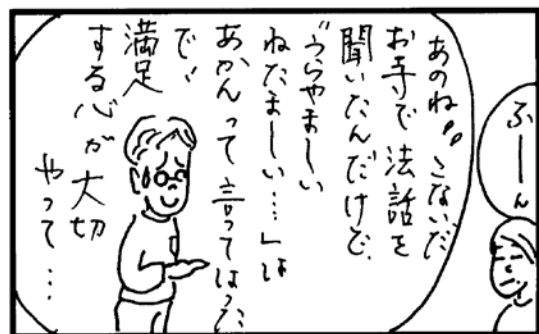 ふーん
あのね、こないだ
お寺で法話を
聞いたんだけど、
「うらやましい
ねたましい…」は
あかんって言ってはった
で、
満足
する心が大切
やって…